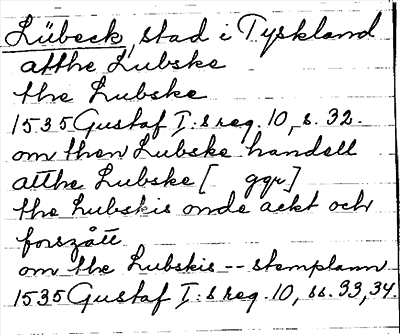 Lübeck, stad i Tyskland
atthe Lubske
the Lubske
1535 Gustaf I:s reg. 10, s. 32.
om then Lubske handell
atthe Lubske [ ggr]
the Lubskis onde ackt och
forszått
om the Lubskis -- stemplann
1535 Gustaf I:s reg. 10, ss. 33, 34.